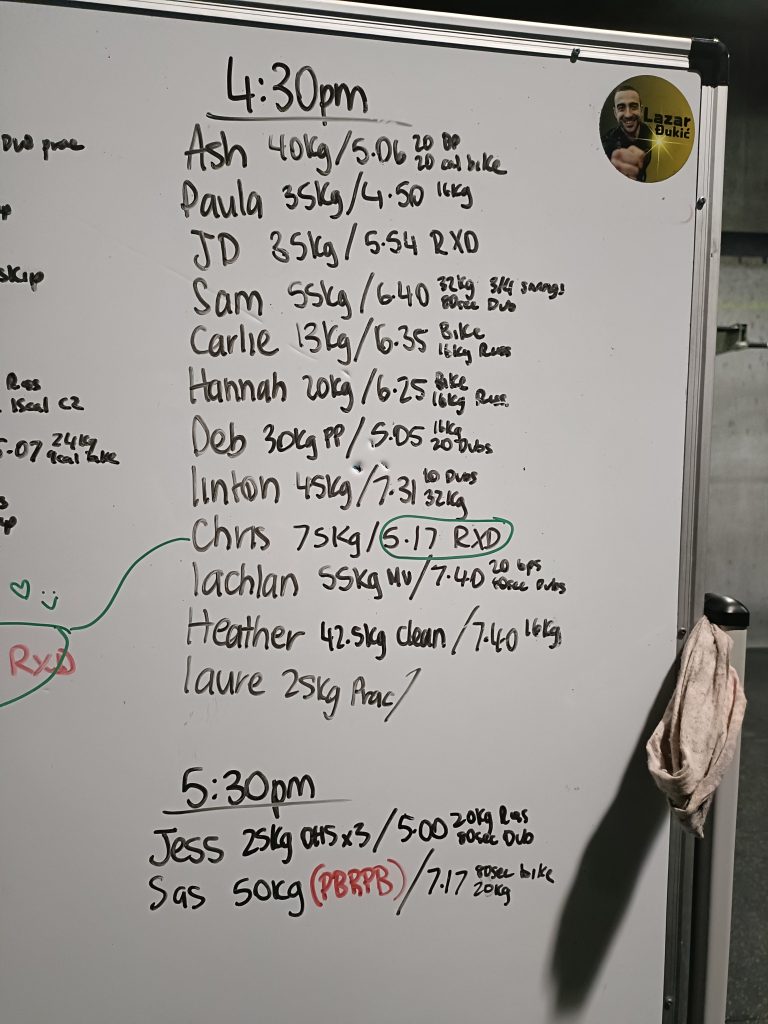 Dub prac
skip
Ras
15cal C2
5.07 24kg
9cal bike
RXD
4:30pm
Lazar
Đukić
Ash 40kg/5.06 20 DP
20 cal bike
Paula 35kg/4.50 16kg
JD 35kg/5.54 RXD
Sam 55kg/6.40 32kg 3/4 swings
80sec Dub
Carlie 13kg/6.35 Bike
16kg Russ
Hannah 20kg/6.25 Bike
16kg Russ
Deb 30kg PP/5.05 16kg
20 Dubs
linton 45kg/7.31 10 Dubs
32kg
Chris 75kg/5.17 RXD
lachlan 55kg MU/7.40
Heather 42.5kg clean/7.40 16kg
laure 25kg Prac/
5:30pm
Jess 25kg OHS x3/5.00 20kg Ras
80sec Dub
Sas 50kg (PBRPB)/7.17 80sec bike
20kg